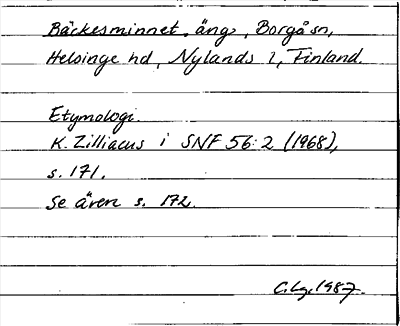 Bäckesminnet, äng, Borgå sn,
Helsinge hd, Nylands l, Finland.
Etymologi.
K. Zilliacus i SNF 56:2 (1968),
s. 171.
Se även s. 172.
C.Lg. 1987.